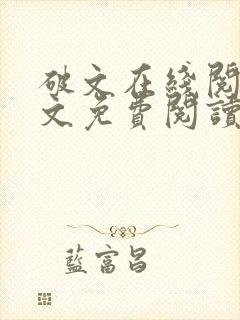 破文在綫閱
文免費閱讀
藍富昌